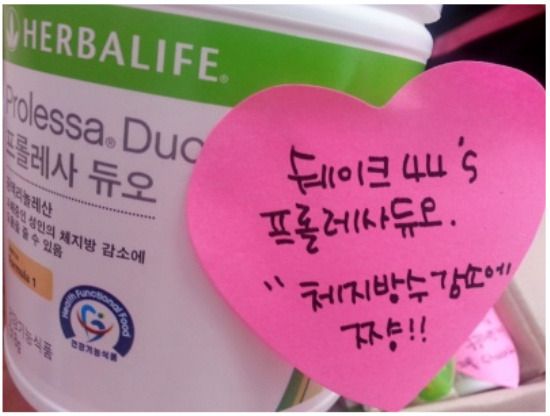 HERBALIFE®
Prolessa® Duo
프롤레사 듀오
성인의 체지방 감소에
도움을 줄 수 있음
Formula 1
Health Functional Food
건강기능식품
건강기능식품
쉐이크 44's
프롤레사듀오.
"체지방수감소에
짜상!!